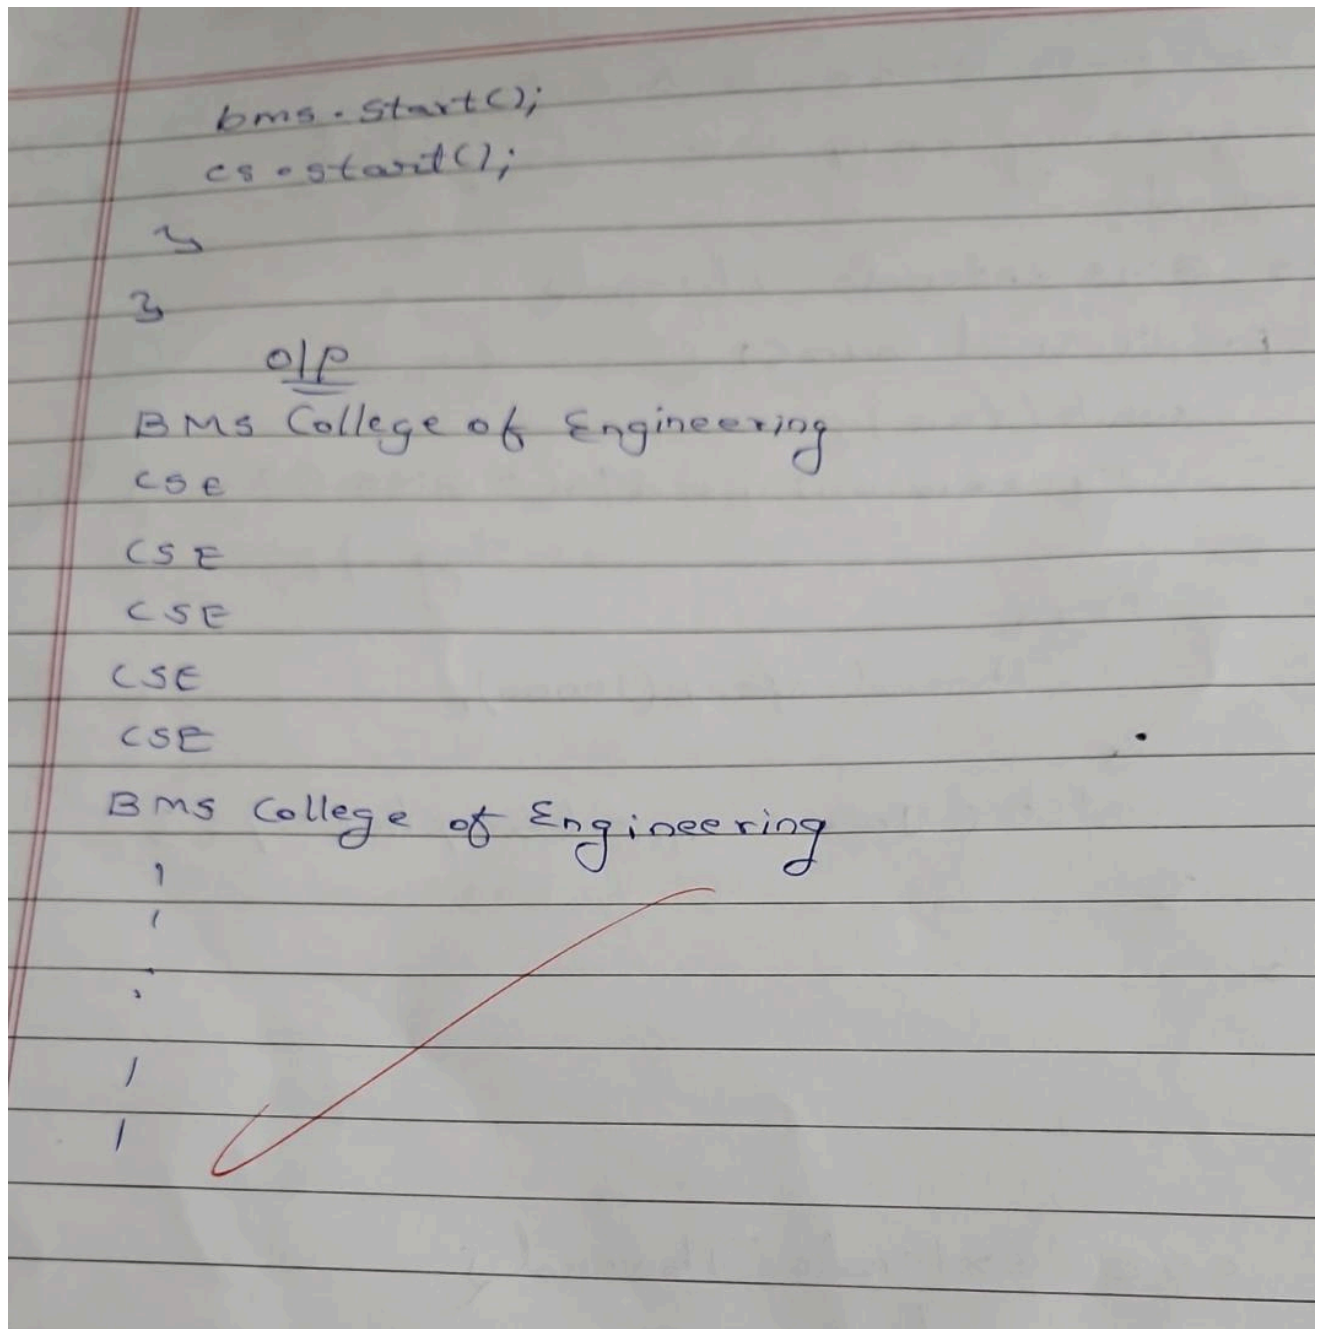 bms.start();
cs.start();
}
}
o/p
BMS College of Engineering
CSE
CSE
CSE
CSE
CSE
BMS College of Engineering